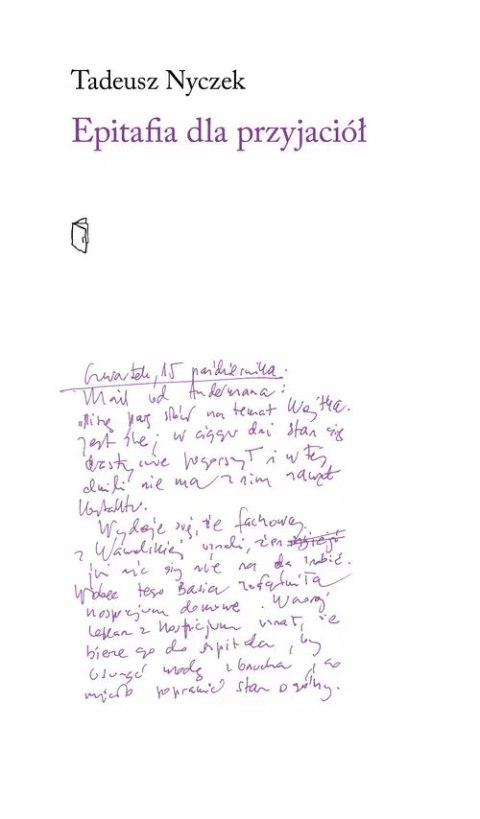 Tadeusz Nyczek
Epitafia dla przyjaciół
Czwartek, 15 października.
Mail od Andermana:
"Piszę parę słów na temat Wojtka.
Jest źle, w ciągu dni stan się
drastycznie pogorszył i w tej
chwili nie ma z nim nawet
kontaktu.
Wydaje się, że fachowcy
z Wawelskiej uznali, że
już nic się nie da zrobić.
Wobec tego Basia załatwiła
hospicjum domowe. Wczoraj
lekarz z hospicjum uznał, że
bierze go do szpitala, by
usunąć wodę z brzucha, co
miało poprawić stan ogólny.